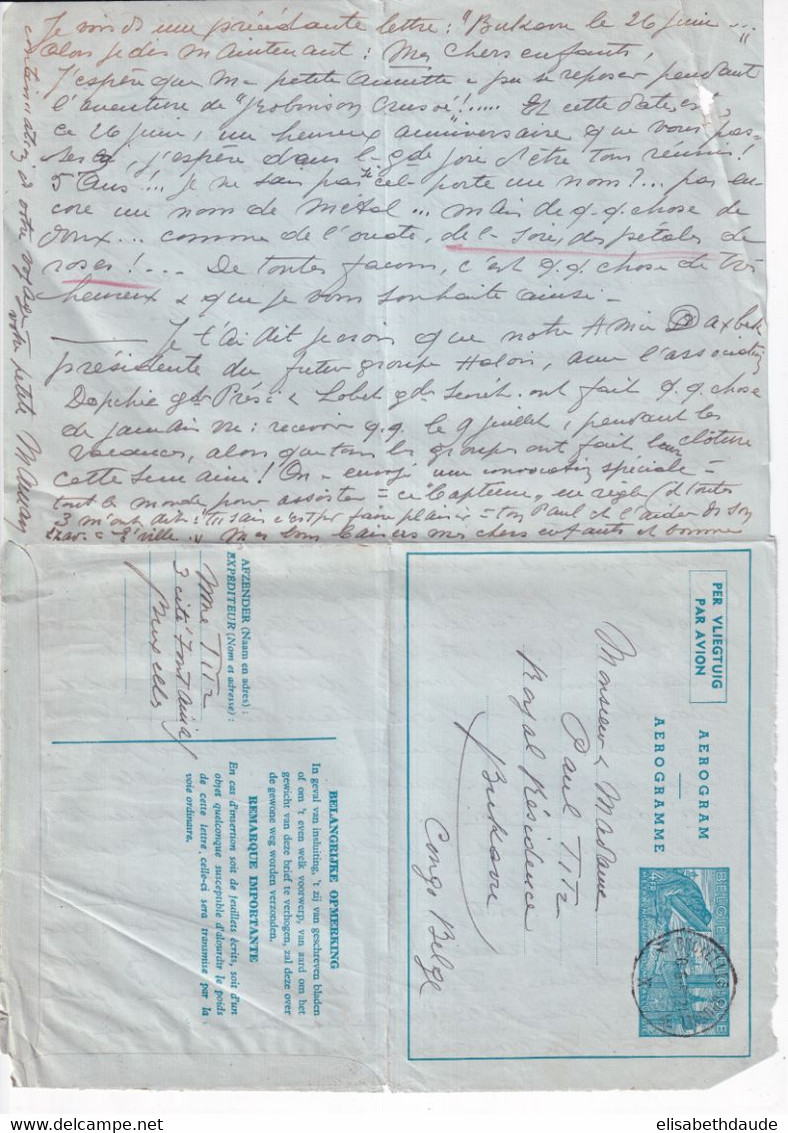 Je vois d une précédente lettre : "Bukavu le 26 juin ....."
alors je dis maintenant : Mes chers enfants,
J'espère que Ma petite Annette a pu se reposer pendant
l'aventure de "Robinson Crusoé! ..... Et cette date
ce 26 juin, un heureux anniversaire que vous pas-
j'espère dans la gde joie d'être tous réunis!
5 ans!!.. Je ne sais pas si cela porte un nom?... pas en-
core un nom de Métal ... mais de q.q. chose de
doux... comme de l'ouate, de la soie, des pétales de
roses!... De toutes façons, c'est q.q. chose de très
heureux & que je vous souhaite ainsi -
Je t'ai dit je crois que notre Ami
présidente du futur groupe avec l'association
gd Prési & gde Secrét. ont fait q.q. chose
de jamais vu : recevoir q.q. le 9 juillet, pendant les
vacances, alors que tous les groupes ont fait leur clôture
cette semaine! On a envoyé une convocation spéciale =
tout le monde pour assister = ce "Capteur" en règle (d toutes
3 m'ont dit : tu sais c'est pr faire plaisir = ton Paul et l'aider ds son
Mes bons baisers mes chers enfants et bonne
continuation de votre voyage
votre petite Maman
AFZENDER (Naam en adres) :
EXPÉDITEUR (Nom et adresse) :
Mme Titz
3 cité Fontainas
Bruxelles
BELANGRIJKE OPMERKING
In geval van insluiting, 't zij van geschreven bladen
of om 't even welk voorwerp, van aard om het
gewicht van deze brief te verhogen, zal deze over
de gewone weg worden verzonden.
REMARQUE IMPORTANTE
En cas d'insertion soit de feuillets écrits, soit d'un
objet quelconque susceptible d'alourdir le poids
de cette lettre, celle-ci sera transmise par la
voie ordinaire.
PER VLIEGTUIG
PAR AVION
AEROGRAM
AEROGRAMME
BELGIE
BELGIQUE
Monsieur & Madame
Paul Titz
Royal Résidence
Bukavu
Congo Belge
elisabethdaude